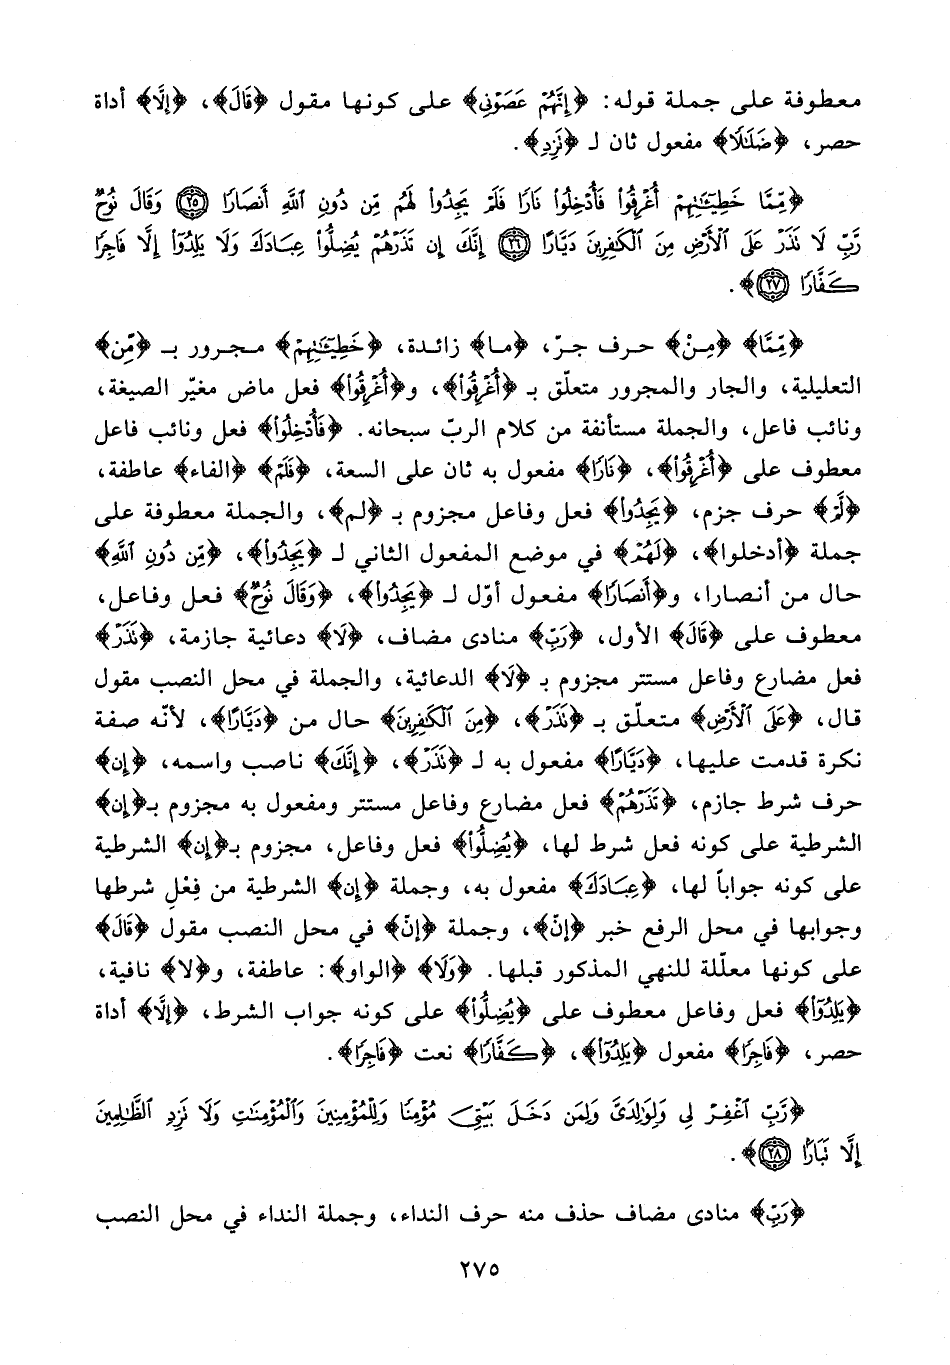 معطوفة على جملة قوله: ﴿إِنَّهُمْ عَصَوْنِى﴾ على كونها مقول ﴿قَالَ﴾، ﴿إِلَّا﴾ أداة
حصر، ﴿ضَلَٰلًا﴾ مفعول ثان لـ ﴿نَزِدِ﴾.
﴿مِّمَّا خَطِيٓـَٰٔتِهِمْ أُغْرِقُوا۟ فَأُدْخِلُوا۟ نَارًا فَلَمْ يَجِدُوا۟ لَهُم مِّن دُونِ ٱللَّهِ أَنصَارًا ٢٥ وَقَالَ نُوحٌ
رَّبِّ لَا تَذَرْ عَلَى ٱلْأَرْضِ مِنَ ٱلْكَٰفِرِينَ دَيَّارًا ٢٦ إِنَّكَ إِن تَذَرْهُمْ يُضِلُّوا۟ عِبَادَكَ وَلَا يَلِدُوٓا۟ إِلَّا فَاجِرًا
كَفَّارًا ٢٧﴾.
﴿مِّمَّا﴾ ﴿مِنْ﴾ حرف جرّ، ﴿ما﴾ زائدة، ﴿خَطِيٓـَٰٔتِهِمْ﴾ مجرور بـ ﴿مِّن﴾
التعليلية، والجار والمجرور متعلّق بـ ﴿أُغْرِقُوا۟﴾، و﴿أُغْرِقُوا۟﴾ فعل ماض مغيّر الصيغة،
ونائب فاعل، والجملة مستأنفة من كلام الربّ سبحانه. ﴿فَأُدْخِلُوا۟﴾ فعل ونائب فاعل
معطوف على ﴿أُغْرِقُوا۟﴾، ﴿نَارًا﴾ مفعول به ثان على السعة، ﴿فَلَمْ﴾ ﴿الفاء﴾ عاطفة،
﴿لَّمْ﴾ حرف جزم، ﴿يَجِدُوا۟﴾ فعل وفاعل مجزوم بـ ﴿لم﴾، والجملة معطوفة على
جملة ﴿أدخلوا﴾، ﴿لَهُمْ﴾ في موضع المفعول الثاني لـ ﴿يَجِدُوا۟﴾، ﴿مِّن دُونِ ٱللَّهِ﴾
حال من أنصارا، و﴿أَنصَارًا﴾ مفعول أوّل لـ ﴿يَجِدُوا۟﴾، ﴿وَقَالَ نُوحٌ﴾ فعل وفاعل،
معطوف على ﴿قَالَ﴾ الأول، ﴿رَبِّ﴾ منادى مضاف، ﴿لَا﴾ دعائية جازمة، ﴿نَذَرْ﴾
فعل مضارع وفاعل مستتر مجزوم بـ ﴿لَا﴾ الدعائية، والجملة في محل النصب مقول
قال، ﴿عَلَى ٱلْأَرْضِ﴾ متعلّق بـ ﴿نَذَرْ﴾، ﴿مِنَ ٱلْكَٰفِرِينَ﴾ حال من ﴿دَيَّارًا﴾، لأنّه صفة
نكرة قدمت عليها، ﴿دَيَّارًا﴾ مفعول به لـ ﴿نَذَرْ﴾، ﴿إِنَّكَ﴾ ناصب واسمه، ﴿إِن﴾
حرف شرط جازم، ﴿تَذَرْهُمْ﴾ فعل مضارع وفاعل مستتر ومفعول به مجزوم بـ﴿إن﴾
الشرطية على كونه فعل شرط لها، ﴿يُضِلُّوا۟﴾ فعل وفاعل، مجزوم بـ﴿إن﴾ الشرطية
على كونه جواباً لها، ﴿عِبَادَكَ﴾ مفعول به، وجملة ﴿إن﴾ الشرطية من فِعْلِ شرطها
وجوابها في محل الرفع خبر ﴿إنّ﴾، وجملة ﴿إنّ﴾ في محل النصب مقول ﴿قَالَ﴾
على كونها معلّلة للنهي المذكور قبلها. ﴿وَلَا﴾ ﴿الواو﴾: عاطفة، و﴿لا﴾ نافية،
﴿يَلِدُوٓا۟﴾ فعل وفاعل معطوف على ﴿يُضِلُّوا۟﴾ على كونه جواب الشرط، ﴿إِلَّا﴾ أداة
حصر، ﴿فَاجِرًا﴾ مفعول ﴿يَلِدُوٓا۟﴾، ﴿كَفَّارًا﴾ نعت ﴿فَاجِرًا﴾.
﴿رَّبِّ ٱغْفِرْ لِى وَلِوَٰلِدَىَّ وَلِمَن دَخَلَ بَيْتِىَ مُؤْمِنًا وَلِلْمُؤْمِنِينَ وَٱلْمُؤْمِنَٰتِ وَلَا نَزِدِ ٱلظَّٰلِمِينَ
إِلَّا نَبَارًۢا ٢٨﴾.
﴿رَبِّ﴾ منادى مضاف حذف منه حرف النداء، وجملة النداء في محل النصب
٢٧٥